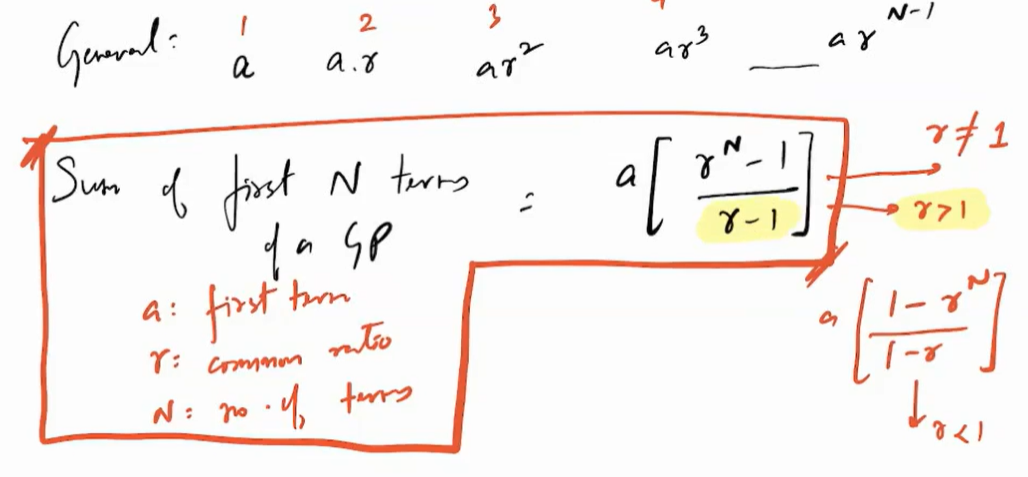 1 2 3
General: a a.r ar² ar³ ___ ar^N-1
Sum of first N terms = a [ r^N - 1 / r - 1 ] → r ≠ 1
→ r > 1
of a GP
a: first term
r: common ratio
N: no. of terms
a [ 1 - r^N / 1 - r ]
↓ r < 1